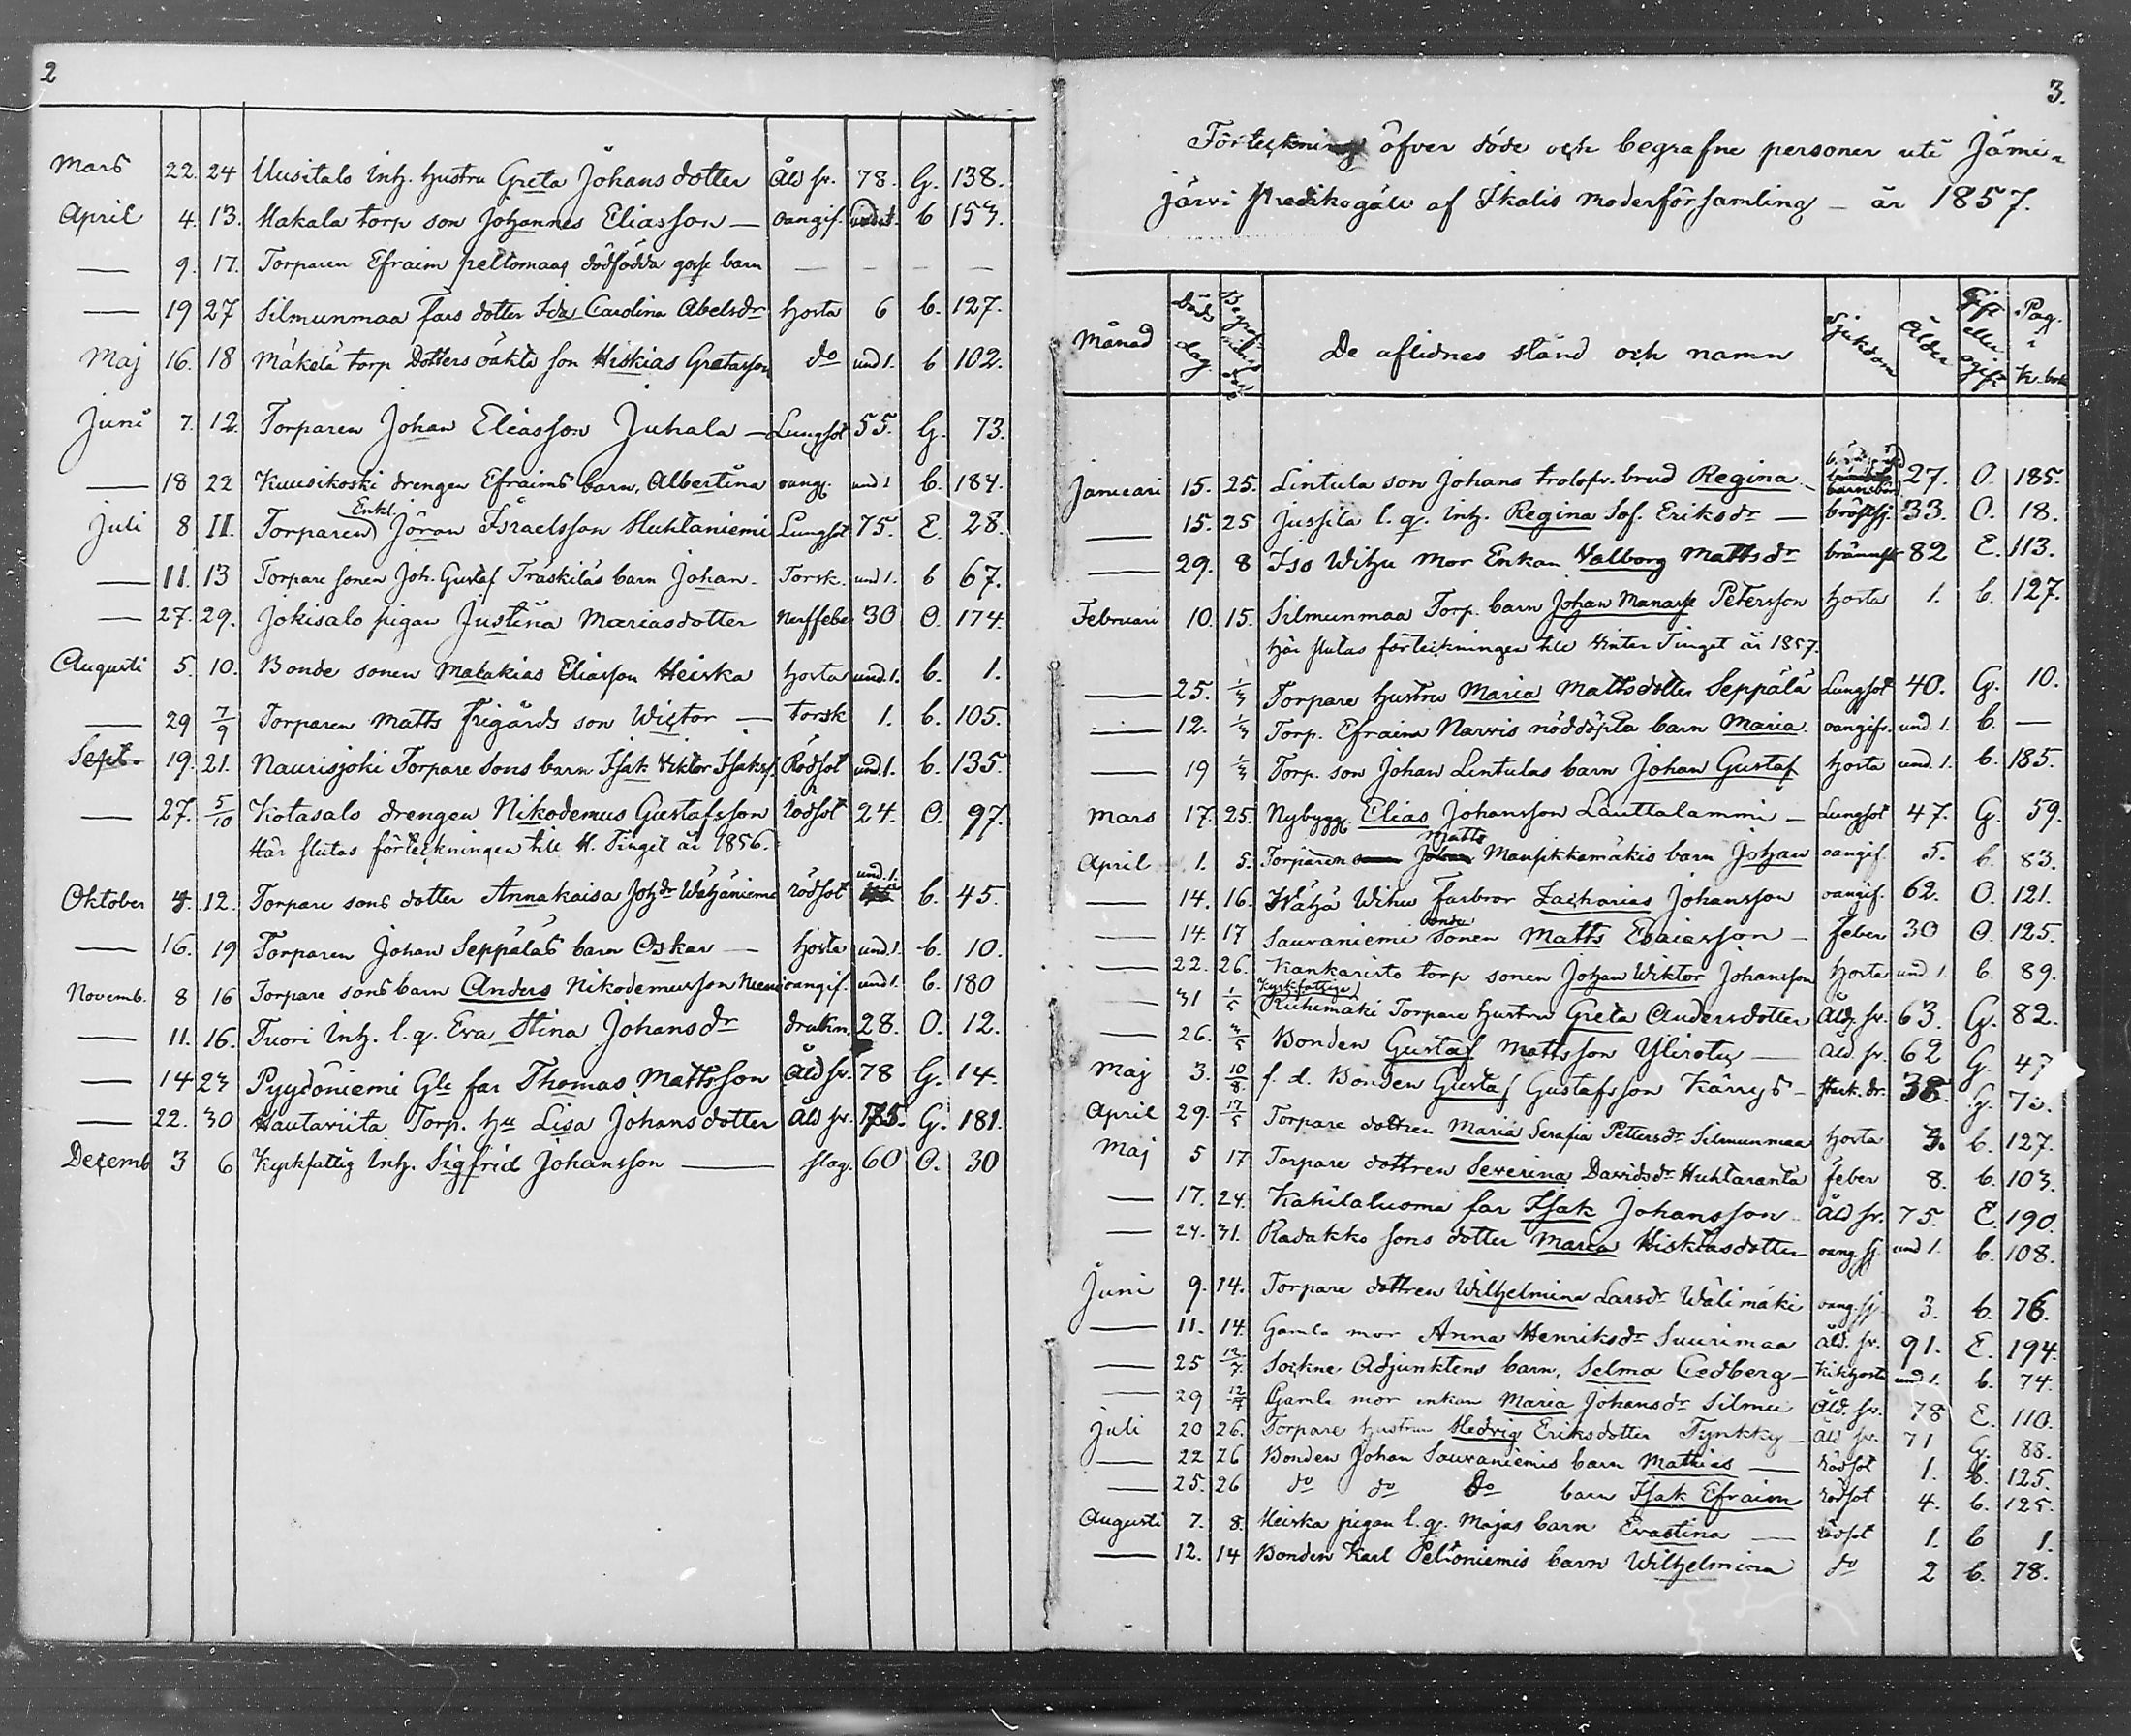 2
Mars 22. 24 Uusitalo Inh. hustru Greta Johans dotter Åld sv. 78. G. 138.
April 4. 13. Makala torp son Johannes Eliasson — oangif. und 1. b 153.
— 9. 17. Torparen Efraim peltomaas dödfödda gosse barn — — — —
— 19 27 Silmunmaa fars dotter Ida Carolina Abelsdr hosta 6 b. 127.
Maj 16. 18 Mäkelä torp Dotters oäkta son Hiskias Gretasson do und 1. b 102.
Juni 7. 12. Torparen Johan Eliasson Juhala — Lungsot 55. G. 73.
— 18 22 Kuusikoski drengen Efraims barn, Albertina oang. und 1 b. 184.
Enkl.
Juli 8 11. Torparen Jöran Israelsson Huhtaniemi Lungsot 75. E. 28.
— 11. 13 Torpare sonen Joh. Gustaf Träskiläs barn Johan. Torsk. und 1. b 67.
— 27. 29. Jokisalo pigan Justina Mariasdotter Nerffeber 30 O. 174.
Augusti 5. 10. Bonde sonen Malakias Eliasson Heiska hosta und. 1. b. 1.
— 29 7/9 Torparen Matts Frigårds son Wictor — torsk 1. b. 105.
Sept. 19. 21. Naurisjoki Torpare Sons barn Isak Viktor Isakss. Rödsot und. 1. b. 135.
— 27. 5/10 Kotasalo drengen Nikodemus Gustafsson rödsot 24. O. 97.
Här slutas förteckningen till H. Tinget år 1856.
Oktober 4. 12. Torpare sons dotter Annakaisa Johdr Wähäniemi rödsot und. 1. b. 45.
— 16. 19 Torparen Johan Seppäläs barn Oskar — hosta und 1. b. 10.
Novemb. 8 16 Torpare sons barn Anders Nikodemusson Niemi oangif. und 1. b. 180
— 11. 16. Tuori Inh. l. q. Eva Stina Johansdr drukn. 28. O. 12.
— 14 23 Pyydöniemi Gle far Thomas Mattsson Åld sv. 78 G. 14.
— 22. 30 Hautaviita Torp. hu Lisa Johansdotter Åld sv. 75. G. 181.
Decemb 3 6 Kyrkfattig Inh. Sigfrid Johansson — slag. 60 O. 30
3.
Förteckning öfver döde och begrafne personer uti Jämi-
järvi predikogäll af Ikalis moderförsamling — år 1857.
Månad Döds dag Begrafnings dag De aflidnes stånd och namn Sjukdom Ålder Gift eller ogift Pag. i K. bok
Januari 15. 25. Lintula son Johans trolofv. brud Regina — barnsbörd 27. O. 185.
— 15. 25 Jussila l. q. Inh. Regina Sof. Eriksdr — bröstsj. 33. O. 18.
— 29. 8 Iso Wihu Mor Enkan Valborg Mattsdr brännsj. 82 E. 113.
Februari 10. 15. Silmunmaa Torp. barn Johan Manasse Petersson hosta 1. b. 127.
Här slutas förteckningen till Vinter Tinget år 1857.
— 25. 1/3 Torpare hustru Maria Mattsdotter Seppälä Lungsot 40. G. 10.
— 12. 1/3 Torp. Efraim Narvis nöddöpta barn Maria. oangifv. und 1. b. —
— 19 1/3 Torp. son Johan Lintulas barn Johan Gustaf hosta und. 1. b. 185.
Mars 17. 25. Nybygg. Elias Johansson Lauttalammi — Lungsot 47. G. 59.
Matts
April 1. 5. Torparen Johan Mansikkamäkis barn Johan oangif. 5. b. 83.
— 14. 16. Wähä Wihu farbror Zacharias Johansson oangif. 62. O. 121.
bonde
— 14. 17 Sauvaniemi sonen Matts Esaiasson — feber 30 O. 125.
— 22. 26. Kankaristo torp sonen Johan Wiktor Johansson hosta und. 1. b. 89.
Kyrkfattige
— 31 1/5 Riihimäki Torpare hustru Greta Andersdotter Åld. sv. 63. G. 82.
— 26. 3/5 Bonden Gustaf Mattsson Ylirotu — Åld. sv. 62 G. 47
Maj 3. 10/8. f. d. Bonden Gustaf Gustafsson Kärrys — stark. dr. 38. G.
April 29. 17/5 Torpare dottren Maria Serafia Pettersdr Silmunmaa hosta 3. b. 127.
Maj 5 17 Torpare dottren Severina Davidsdr Huhtaranta feber 8. b. 103.
— 17. 24. Kahilaluoma far Isak Johansson. Åld sv. 75. E. 190.
— 24. 31. Radakko sons dotter Maria Hiskiasdotter oang. sj. und 1. b. 108.
Juni 9. 14. Torpare dottren Wilhelmina Larsdr Wälimäki oang. sj. 3. b. 76.
— 11. 14. Gamla mor Anna Henriksdr Suurimaa Åld. sv. 91. E. 194.
— 25 12/7. Sockne Adjunktens barn, Selma Cedberg — Kikhosta und 1. b. 74.
— 29 12/7 Gamla mor enkan Maria Johansdr Silmu Åld. sv. 78 E. 110.
Juli 20 26. Torpare hustrun Hedvig Eriksdotter Tynkky — Åld sv. 71 G. 88.
— 22 26 Bonden Johan Sauvaniemis barn Mathias — rödsot 1. b. 125.
— 25. 26 do do do barn Isak Efraim rödsot 4. b. 125.
Augusti 7. 8. Heiska pigan l. q. Majas barn Evastina — rödsot 1. b 1.
— 12. 14 Bonden Karl Peltoniemis barn Wilhelmina do 2 b. 78.